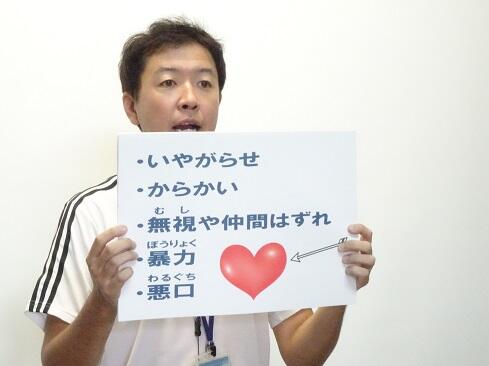 ・いやがらせ
・からかい
むし
・無視や仲間はずれ
ぼうりょく
・暴力
わるぐち
・悪口